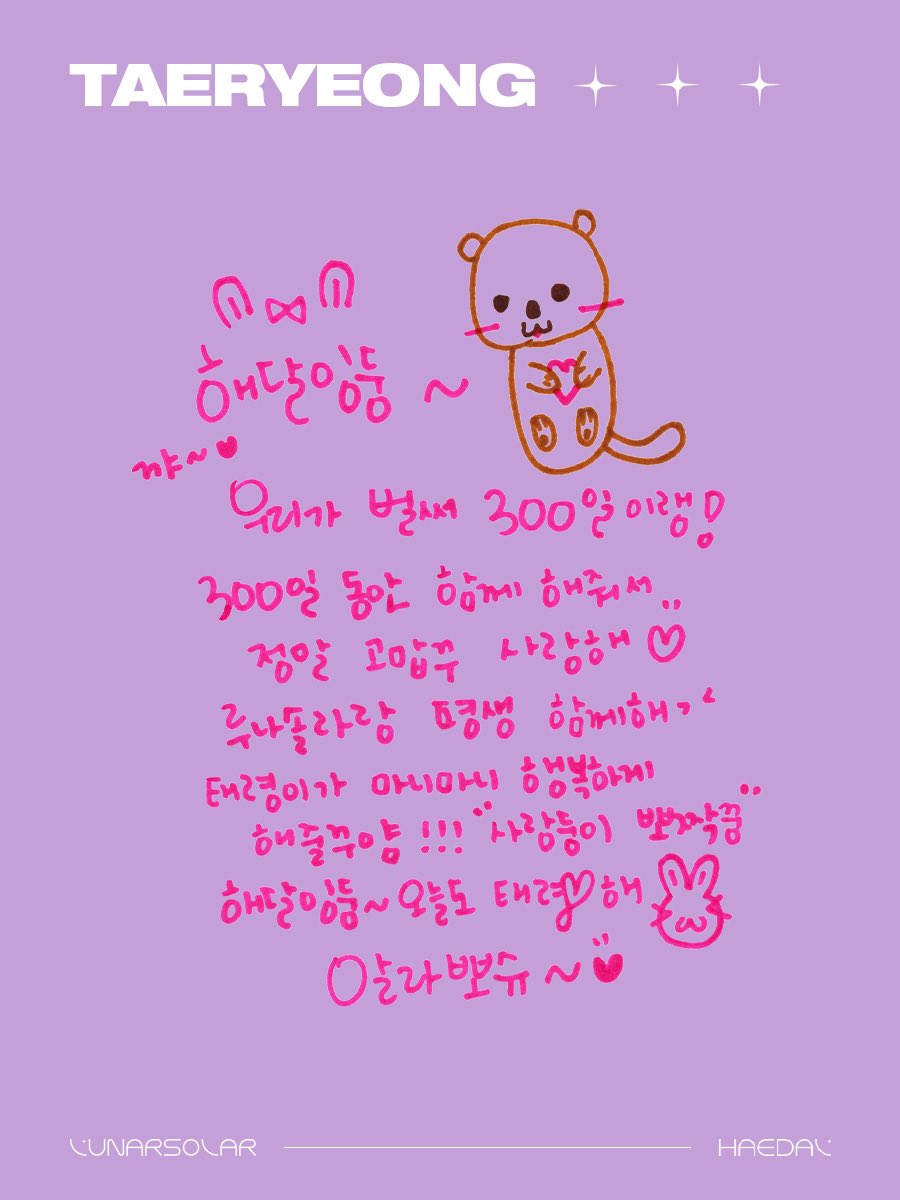 TAERYEONG
해달임둥 ~
꺄~♥
우리가 벌써 300일이랭!
300일 동안 함께 해줘서
정말 고맙꾸 사랑해 ♡
루나솔라랑 평생 함께해
태령이가 마니마니 행복하게
해줄꾸얌 !!! 사랑둥이 뽀짝꿍
해달임둥~ 오늘도 태령♡해
알라뽀슈 ~ ♥
LUNARSOLAR HAEDAL